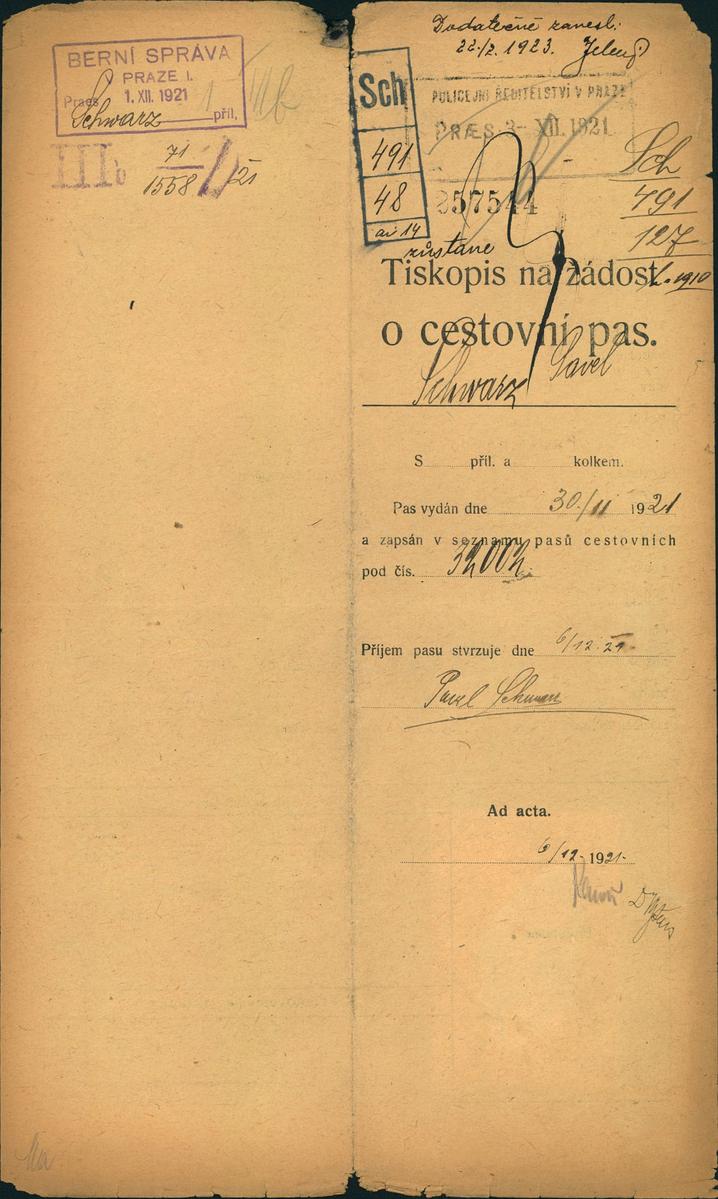 BERNÍ SPRÁVA
PRAZE I.
Praes. 1. XII. 1921
Schwarz příl.
III b 71
1558/I/21
Dodatečně zanesl.
22./2. 1923.
Sch
491
48
ai 14
zůstane
POLICEJNÍ ŘEDITELSTVÍ V PRAZE
PRÆS. 3- XII. 1921
357544
Sch
791
127
1910
Tiskopis na žádost
o cestovní pas.
Schwarz Pavel
S příl. a kolkem.
Pas vydán dne 30./11 1921
a zapsán v seznamu pasů cestovních
pod čís. 32002
Příjem pasu stvrzuje dne 6/12.21
Pavel Schwarz
Ad acta.
6/12. 1921.